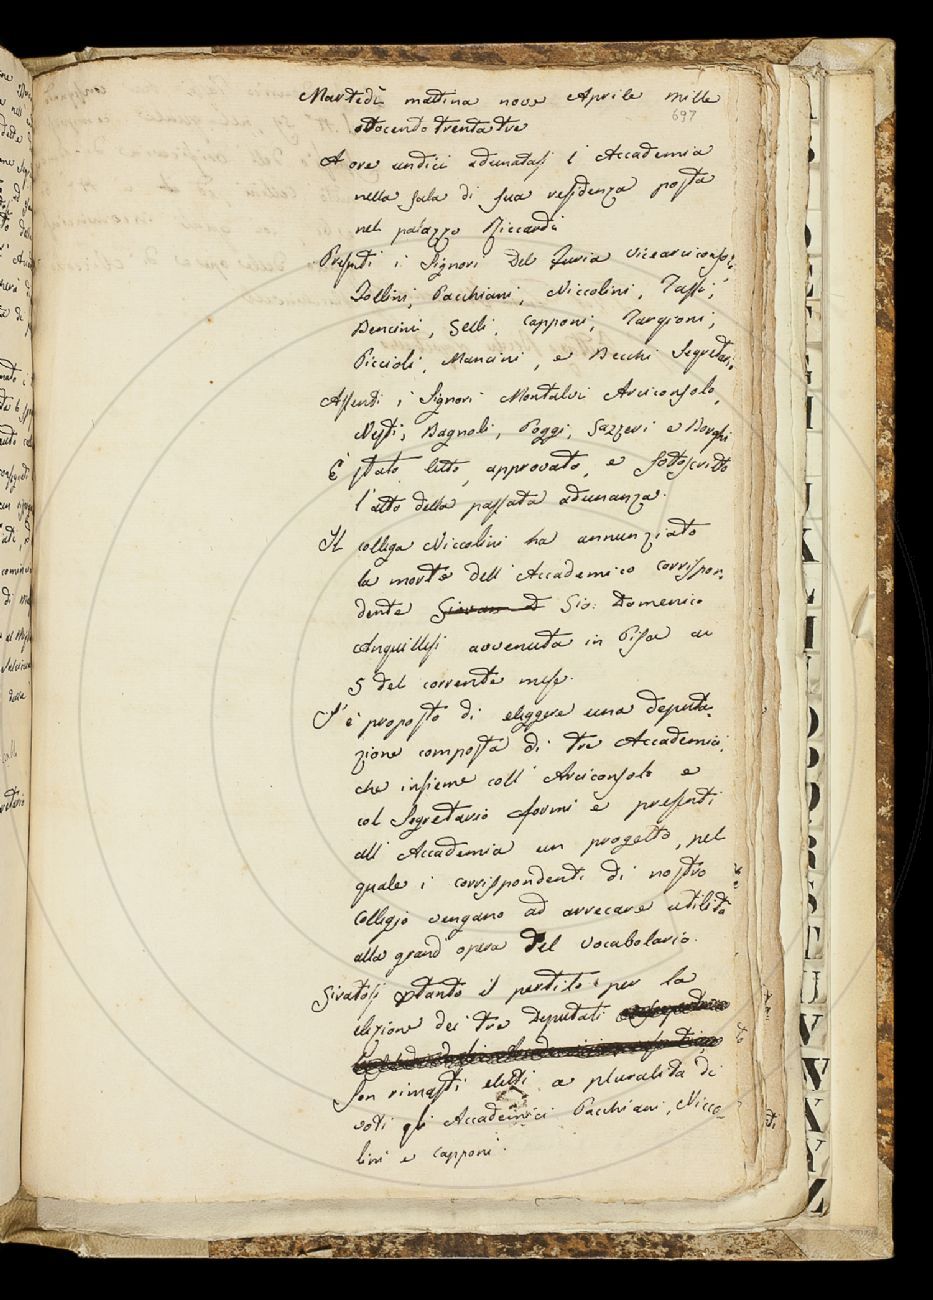 Martedì mattina nove Aprile mille
697
ottocento trenta tre
A ore undici adunatasi l'Accademia
nella sala di sua residenza posta
nel palazzo Riccardi
Presenti i Signori Del Furia Vicearciconsolo,
Follini, Pacchiani, Niccolini, Tassi,
Bencini, Selli, Capponi, Targioni,
Piccioli, Mancini, e Becchi Segretario
Assenti i Signori Montalvi Arciconsolo,
Nesti, Bagnoli, Poggi, Gazzeri e Borghi
È stato letto, approvato, e sottoscritto
l'atto della passata adunanza.
Il collega Niccolini ha annunziato
la morte dell'Accademico corrispon,
dente Giovan D Gio: Domenico
Anguillesi avvenuta in Pisa ai
5 del corrente mese.
S'è proposto di eleggere una deputa,
zione composta di tre Accademici,
che insieme coll'Arciconsolo e
col Segretario formi e presenti
all'Accademia un progetto, pel
quale i corrispondenti di nostro
Collegio vengano ad arrecare utilità
alla grand opera del vocabolario.
Giratosi intanto il partito per la
elezione dei tre Deputati
son rimasti eletti a pluralità di
voti gli Accademici Pacchiani, Nicco-
lini e Capponi.